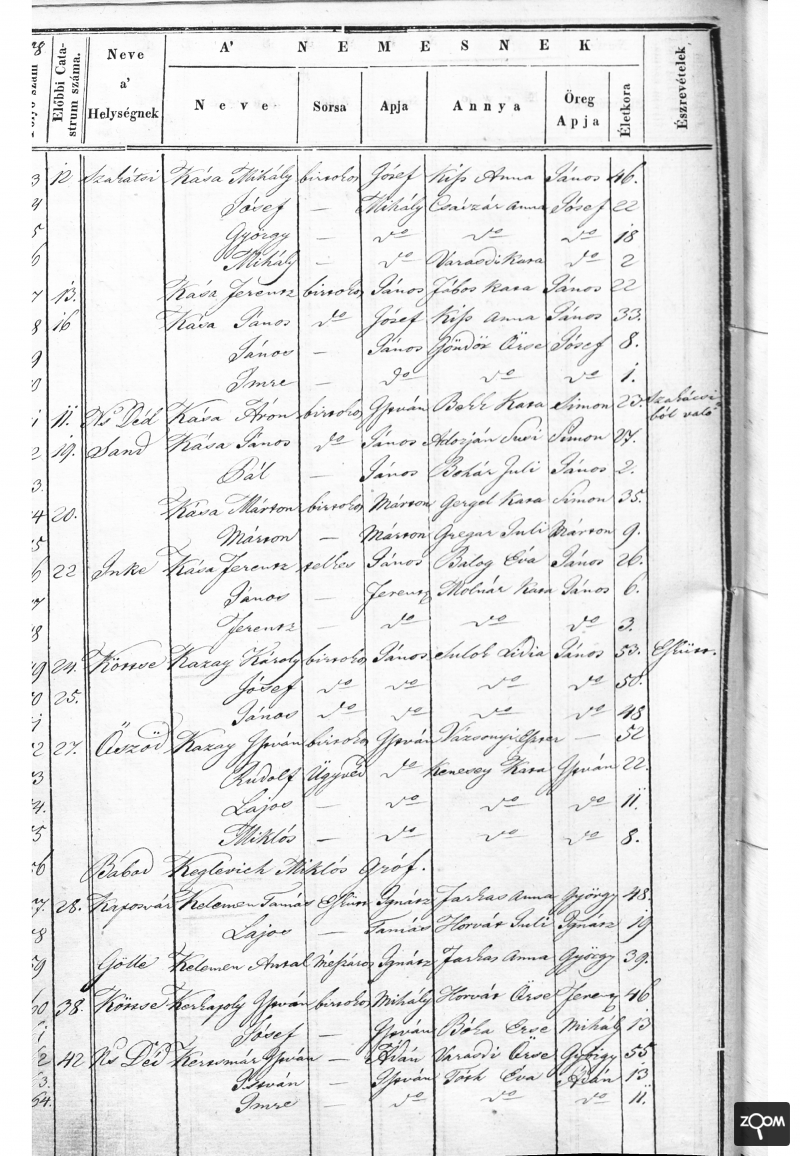 A' NEMESNEK
Előbbi Catastrum száma. Neve a' Helységnek Neve Sorsa Apja Annya Öreg Apja Életkora Észrevételek
3 12 Szakátsi Kása Mihály birtokos Jósef Kiss Anna János 46.
4 Jósef — Mihály Császár Anna Jósef 22
5 György — do do do 18
6 Mihály — do Varasdi Kata do 2
7 13. Kása Ferentz birtokos János Jábos Kata János 22
8 16 Kása János do Jósef Kiss Anna János 33.
9 János — János Göndör Örse Jósef 8.
0 Imre — do do do 1.
1 11. Ns Déd Kása Áron birtokos István Kata Simon 23. Szakácsiból való
2 19. Sand Kása János do János Adorján Susi Simon 27.
3. Pál — János Bohár Juli János 2.
4 20. Kása Márton birtokos Márton Gergel Kata Simon 35.
5 Márton — Márton Gregar Juli Márton 9.
6 22 Inke Kása Ferentz telkes János Balog Éva János 26.
7 János — Ferentz Molnár Kata János 6.
8 Ferentz — do do do 3.
9 24. Köttse Kazay Károly birtokos János Sulok Lidia János 53. Eskütt.
0 25. Jósef do do do do 50.
1 János do do do do 48
2 27. Öszöd Kazay István birtokos István Vázsonyi Eszter — 52
3 Rudolf Ügyvéd do Kenesey Kata István 22.
4. Lajos — do do do 11.
5 Miklós — do do do 8.
6 Babod Keglevich Miklós Gróf.
7. 28. Kaposvár Kelemen Tamás Esküt Ignátz Farkas Anna György 48.
8 Lajos — Tamás Horvát Juli Ignátz 19
9 Gölle Kelemen Antal Mészáros Ignátz Farkas Anna György 39.
60 38. Köttse Kerkapoly István birtokos Mihály Horvát Örse Ferencz 46
1 Jósef — István Bóka Erse Mihály 13
62 42 Ns Déd Kertsmár István — Ádán Varasdi Örse György 55
63. István — István Tóth Éva Ádán 13
64. Imre — do do do 11.
ZOOM